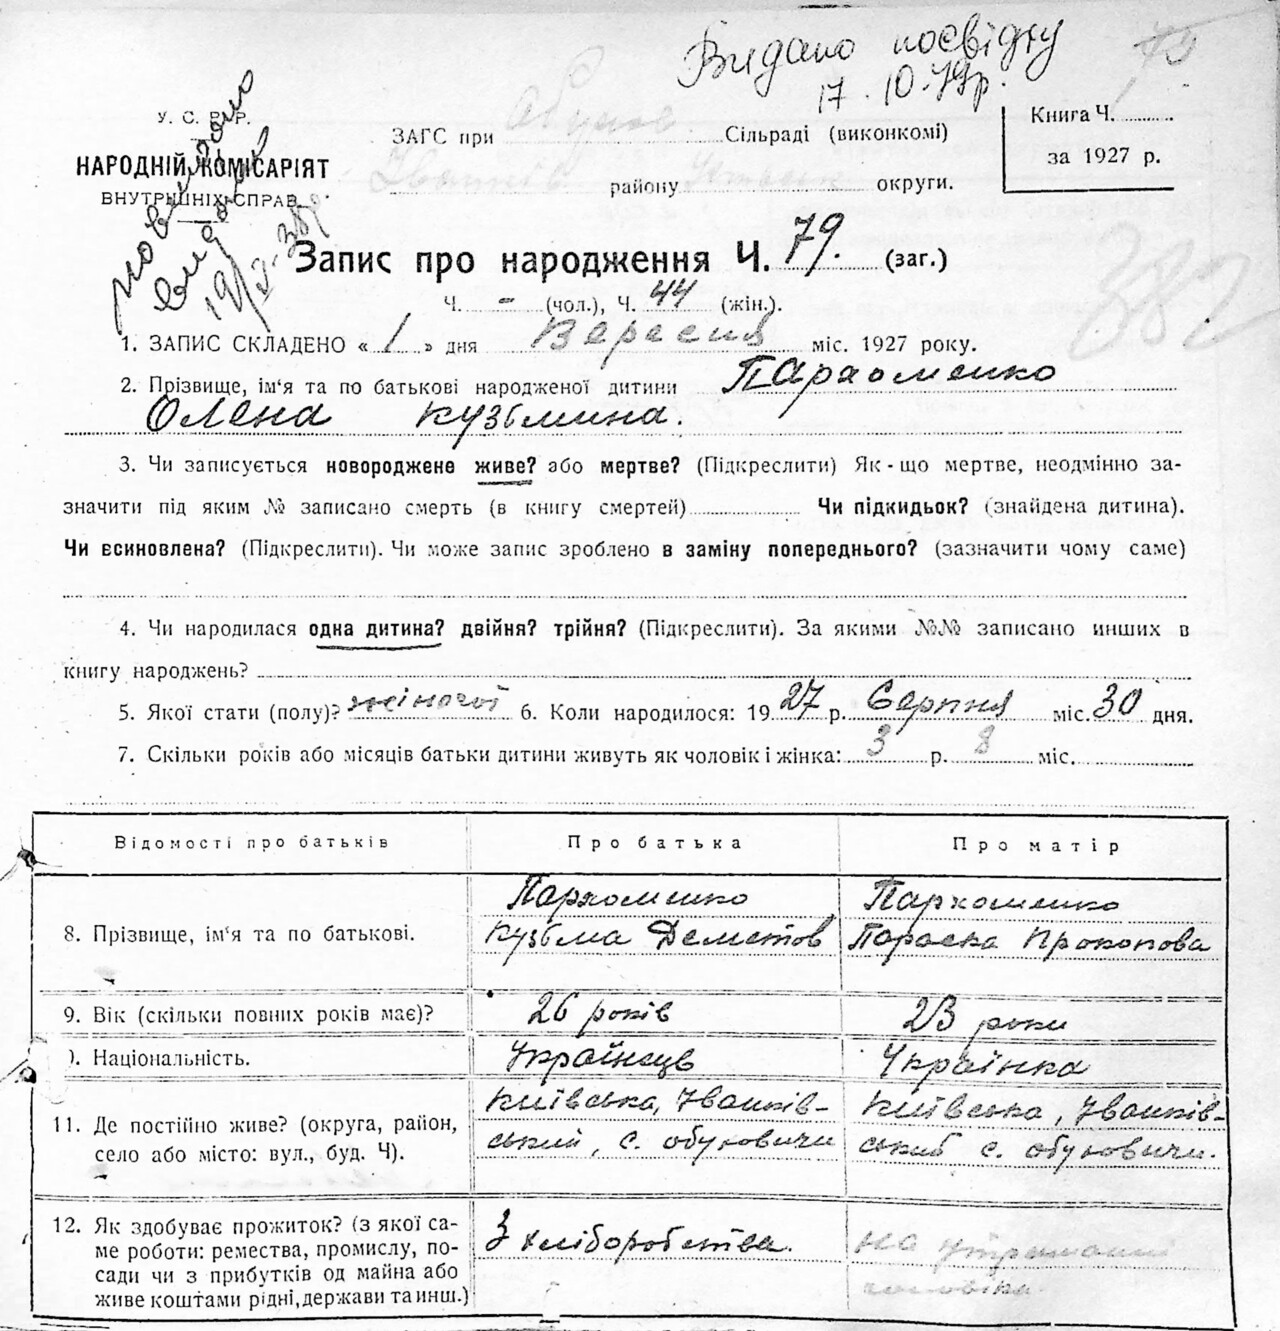 Видано посвідку
17.10.79р.
75
У. С. Р. Р.
НАРОДНІЙ КОМІСАРІЯТ
ВНУТРІШНІХ СПРАВ
видано
19/
ЗАГС при Обухов. Сільраді (виконкомі)
Іванків району округи.
Книга Ч.
за 1927 р.
382
Запис про народження Ч. 79. (заг.)
Ч. - (чол.), Ч. 44 (жін.).
1. ЗАПИС СКЛАДЕНО « 1 » дня Вересня міс. 1927 року.
2. Прізвище, ім'я та по батькові народженої дитини Пархоменко
Олена Кузьмина.
3. Чи записується новороджене живе? або мертве? (Підкреслити) Як-що мертве, неодмінно за-
значити під яким № записано смерть (в книгу смертей) Чи підкидьок? (знайдена дитина).
Чи всиновлена? (Підкреслити). Чи може запис зроблено в заміну попереднього? (зазначити чому саме)
4. Чи народилася одна дитина? двійня? трійня? (Підкреслити). За якими №№ записано инших в
книгу народжень?
5. Якої стати (полу)? жіночої 6. Коли народилося: 1927 р. Серпня міс. 30 дня.
7. Скільки років або місяців батьки дитини живуть як чоловік і жінка: 3 р. 8 міс.
Відомості про батьків
Про батька
Про матір
8. Прізвище, ім'я та по батькові.
Пархоменко
Кузьма Деметов
Пархоменко
Параска Прокопова
9. Вік (скільки повних років має)?
26 років
23 роки
). Національність.
Українець
Українка
11. Де постійно живе? (округа, район,
село або місто: вул., буд. Ч).
Київська, Іванків-
ський, с. обуховичи
Київська, Іванків-
ський с. обуховичи.
12. Як здобуває прожиток? (з якої са-
ме роботи: ремества, промислу, по-
сади чи з прибутків од майна або
живе коштами рідні, держави та инш.)
З хліборобства.
на утриманні
чоловіка.